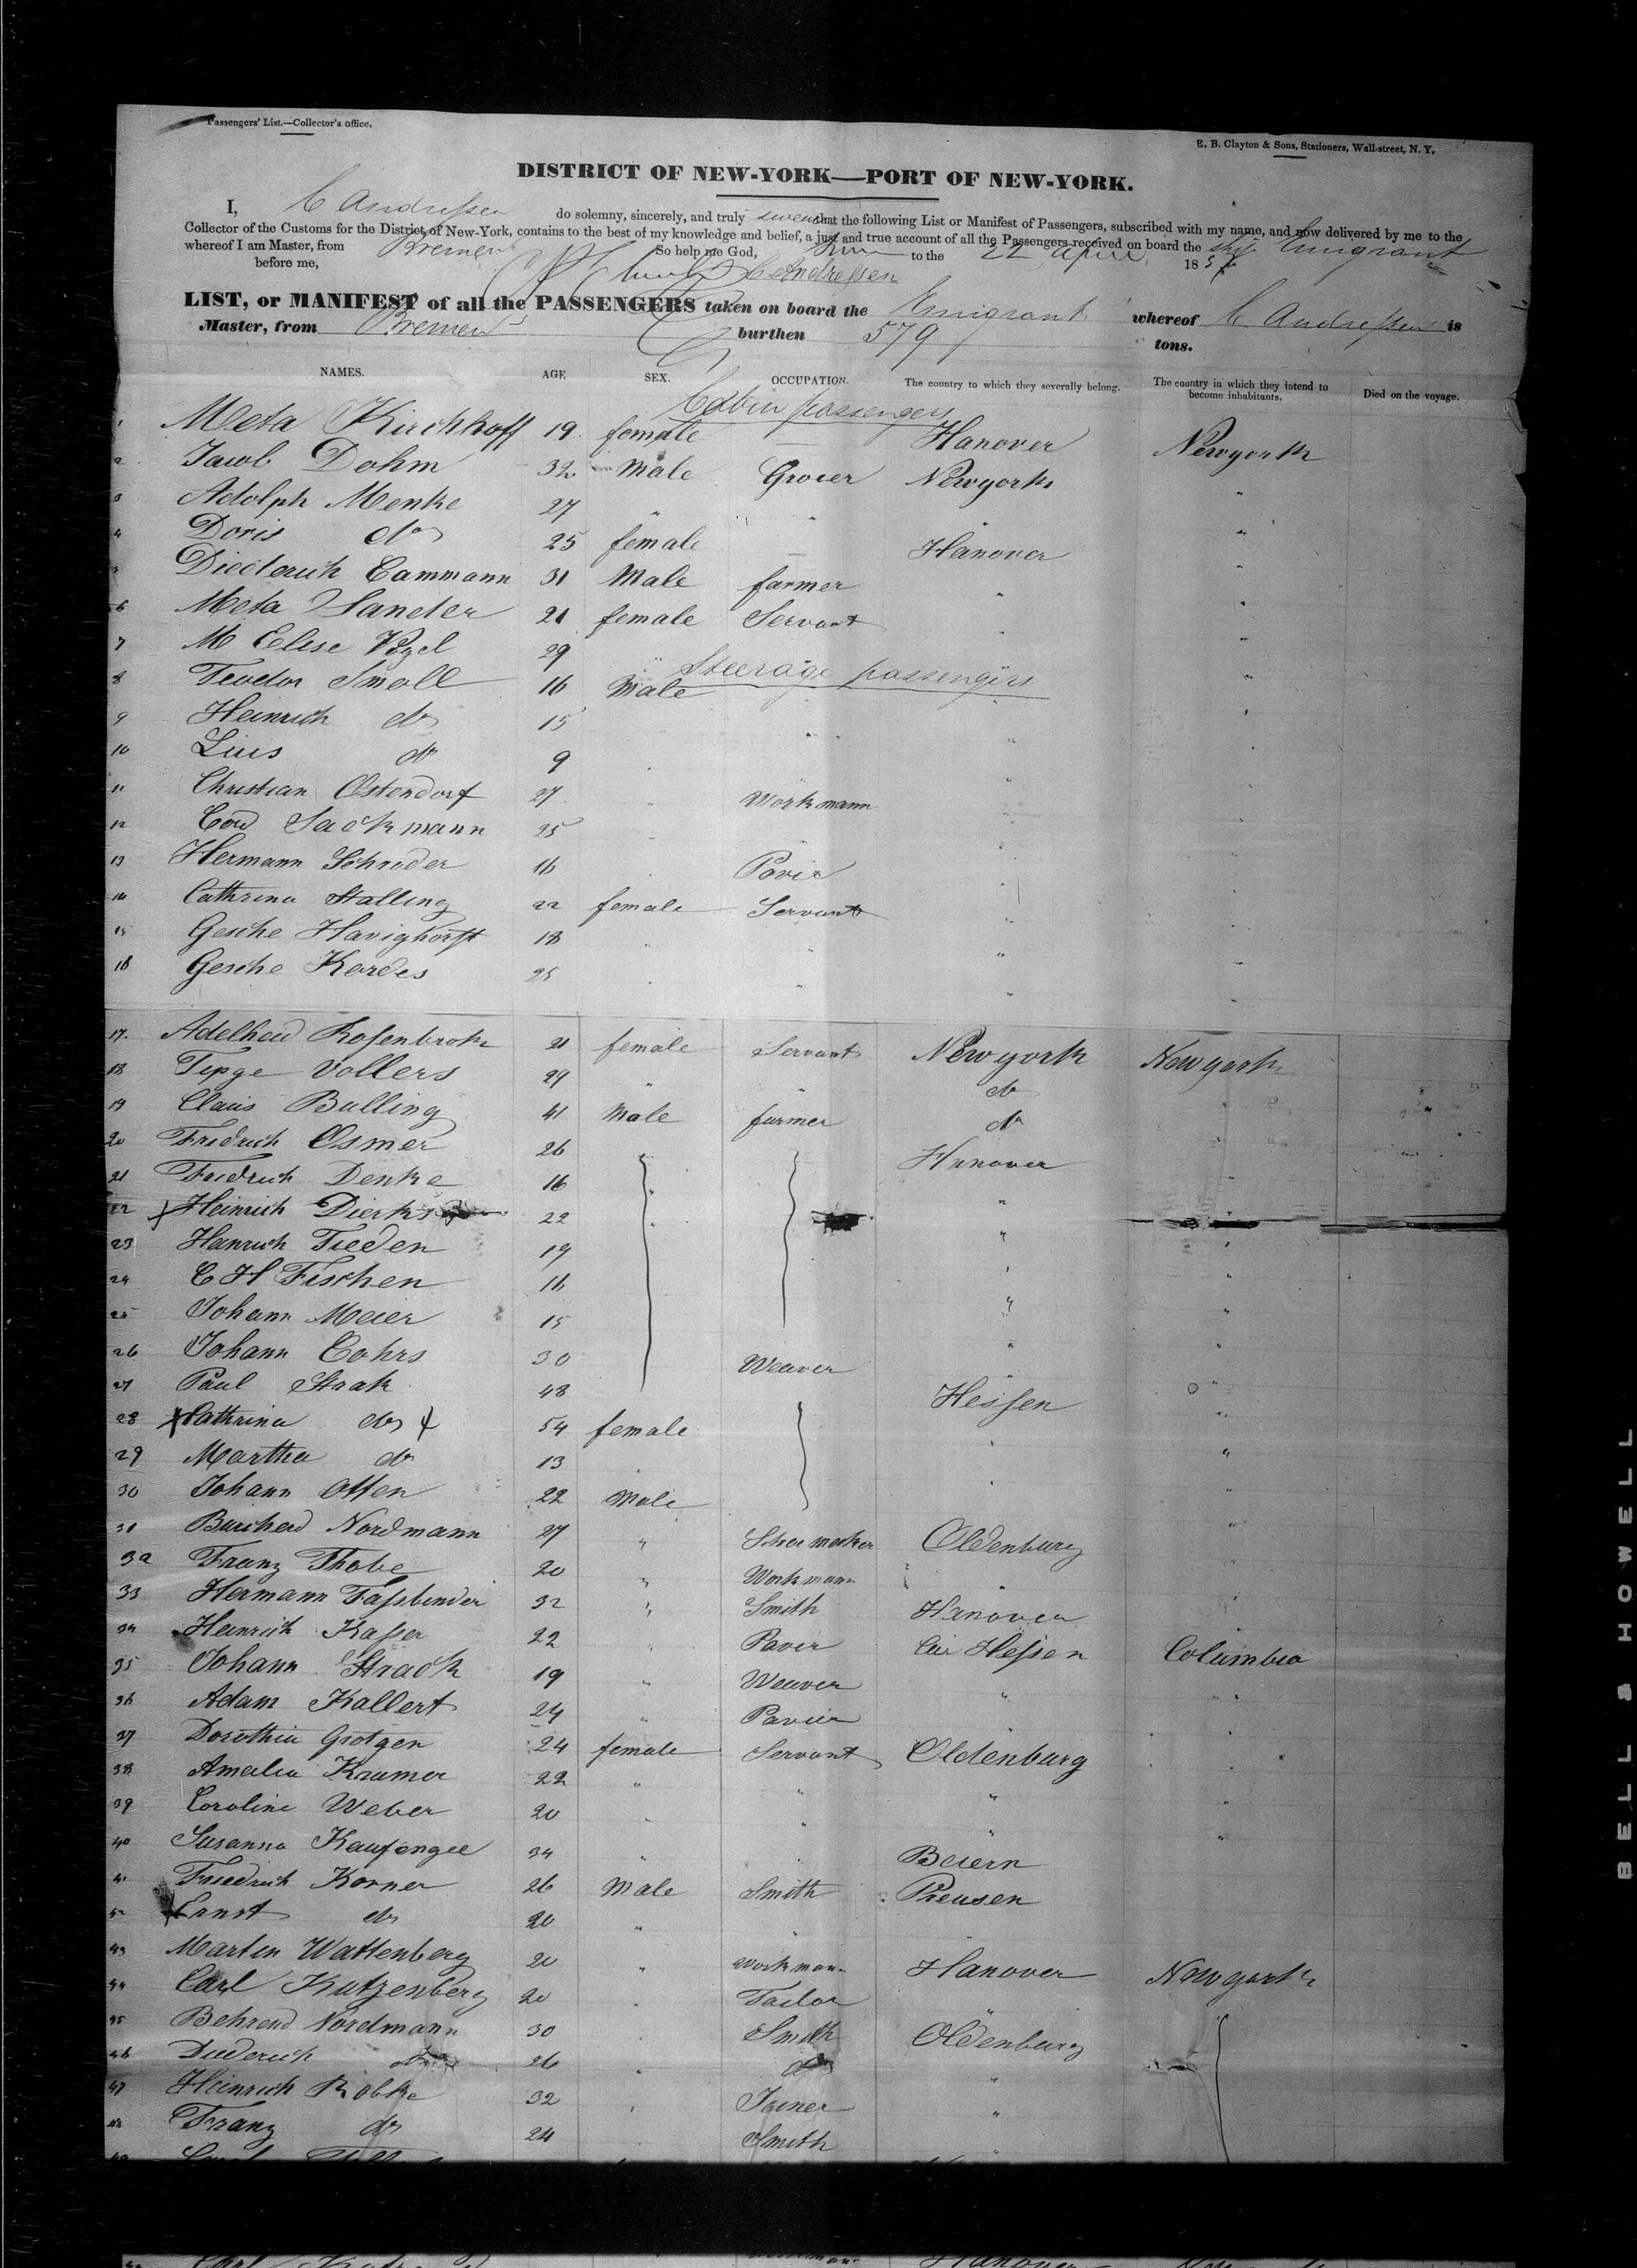 Passengers' List.—Collector's office.
E. B. Clayton & Sons, Stationers, Wall-street, N. Y.
DISTRICT OF NEW-YORK—PORT OF NEW-YORK.
I, C Andressen do solemny, sincerely, and truly swear that the following List or Manifest of Passengers, subscribed with my name, and now delivered by me to the
Collector of the Customs for the District of New-York, contains to the best of my knowledge and belief, a just and true account of all the Passengers received on board the ship Emigrant
whereof I am Master, from Bremen So help me God, to the 22 April 185
before me, C Andressen
LIST, or MANIFEST of all the PASSENGERS taken on board the Emigrant whereof C Andressen is
Master, from Bremen burthen 579 tons.
NAMES. AGE SEX. OCCUPATION. The country to which they severally belong. The country in which they intend to become inhabitants. Died on the voyage.
Cabin passengers
1 Meta Kirchhoff 19 female — Hanover Newyork
2 Jacob Dohm 32 Male Grocer Newyork "
3 Adolph Menke 27 " " "
4 Doris do 25 female — Hanover "
5 Diederich Cammann 31 Male farmer " "
6 Meta Hander 21 female Servant " "
7 M Elise Vogel 29 " "
Steerage passengers
8 Teodor Small 16 Male "
9 Heinrich do 15 " "
10 Luis do 9 " "
11 Christian Ostendorf 27 " Workmann
12 Cord Sackmann 25 "
13 Hermann Schroder 16 " Pavir "
14 Cathrina Stalling 22 female Servant "
15 Gesche Havighorst 18 " "
16 Gesche Kordes 25 " " "
17. Adelheid Rosenbrok 21 female Servant Newyork Newyork
18 Tepge Vollers 29 " " do
19 Claus Bulling 41 Male farmer do "
20 Fredrich Osmer 26 Hanover "
21 Friedrich Denke 16 " "
22 Heinrich Dierks 22 "
23 Heinrich Tieden 19 " "
24 C H Fischen 16 " "
25 Johann Meier 15 " "
26 Johann Cohrs 30 Weaver " "
27 Paul Strak 48 Hessen "
28 Cathrina do 54 female "
29 Martha do 13 " " "
30 Johann Otten 22 Male " "
31 Burchard Nordmann 27 " Shoemaker Oldenburg "
32 Franz Thobe 20 " Workmann "
33 Hermann Fassbinder 32 " Smith Hanover "
34 Heinrich Kasser 22 " Pavir Hessen Columbia
35 Johann Strack 19 " Weaver " "
36 Adam Kallert 24 " Pavier "
37 Dorothia Grotgen 24 female Servant Oldenburg "
38 Amalia Kramer 22 " " " "
39 Caroline Weber 20 " " " "
40 Susanna Kaufongel 34 " " Beiern
41 Friedrich Korner 26 Male Smith Preusen
42 Ernst do 20 " "
43 Martin Wattenberg 20 " workmann Hanover Newyork
44 Carl Katzenberg 20 " Tailor
45 Behrend Nordmann 30 " Smith Oldenburg
46 Diederich do 26 " do
47 Heinrich Robke 32 " Joiner "
48 Franz do 24 " Smith "
BELL & HOWELL